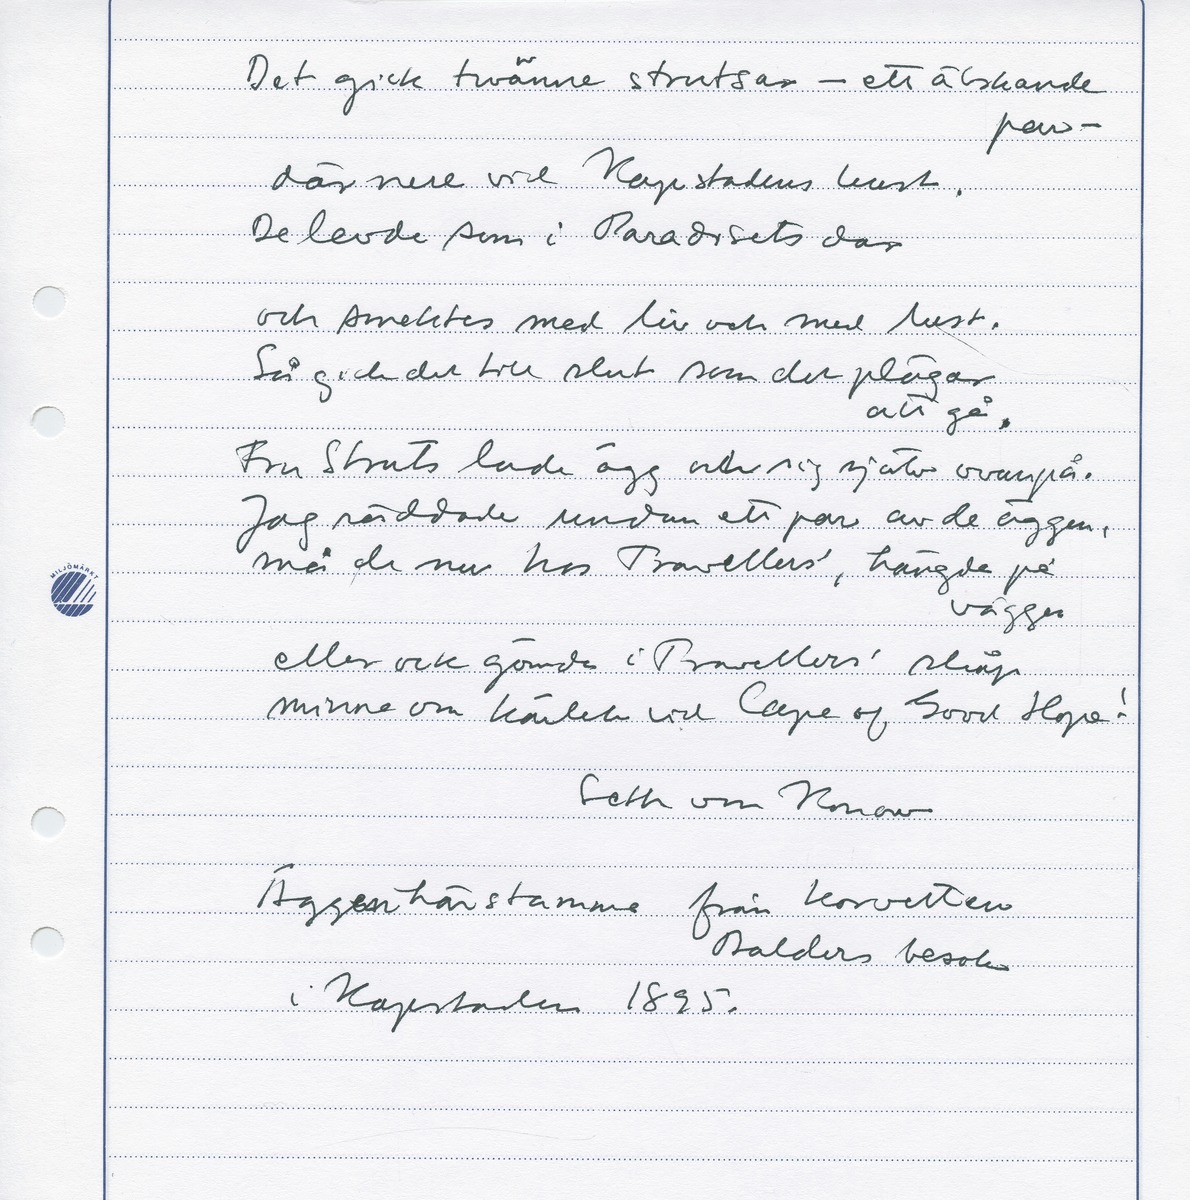 Det gick tvänne strutsar – ett älskande
par –
där nere vid Kapstadens kust.
De levde som i Paradisets dar
och smektes med liv och med lust.
Så gick det till slut som det plägar
att gå.
Fru Struts lade ägg och sig själv ovanpå.
Jag räddade undan ett par av de äggen,
må de nu hos Travellers', hängde på
väggen
eller ock gömda i Travellers' skåp
minne om kärlek vid Cape of Good Hope!
Seth von Konow
Äggen härstamma från korvetten
Balders besök
i Kapstaden 1895.
MILJÖMÄRKT